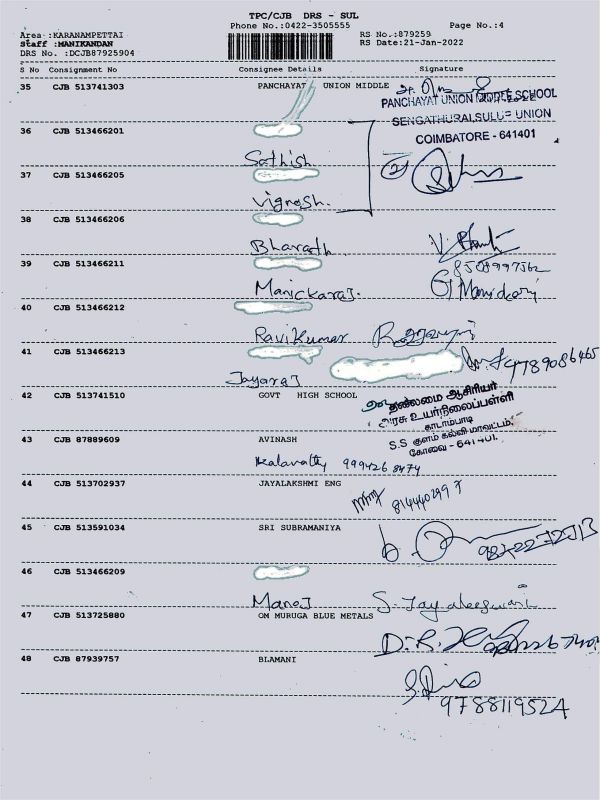 TPC/CJB DRS - SUL
Phone No.:0422-3505555 Page No.:4
Area :KARANAMPETTAI RS No.:879259
Staff :MANIKANDAN RS Date:21-Jan-2022
DRS No. :DCJB87925904
S No Consignment No Consignee Details Signature
35 CJB 513741303 PANCHAYAT UNION MIDDLE
PANCHAYAT UNION MIDDLE SCHOOL
SENGATHURAI, SULUR UNION
COIMBATORE - 641401
36 CJB 513466201
Sathish
37 CJB 513466205
Vignesh.
38 CJB 513466206
Bharath
39 CJB 513466211 8508997562
Manickaraj.
40 CJB 513466212
Ravikumar
41 CJB 513466213 9789086465
Jayaraj
42 CJB 513741510 GOVT HIGH SCHOOL
தலைமை ஆசிரியர்
அரசு உயர்நிலைப்பள்ளி
காடாம்பாடி
S.S குளம் கல்வி மாவட்டம்
கோவை - 641 401.
43 CJB 87889609 AVINASH
Kalavathy 999426 8474
44 CJB 513702937 JAYALAKSHMI ENG
45 CJB 513591034 SRI SUBRAMANIYA
46 CJB 513466209
Manoj
47 CJB 513725880 OM MURUGA BLUE METALS
48 CJB 87939757 BLAMANI
9788119524